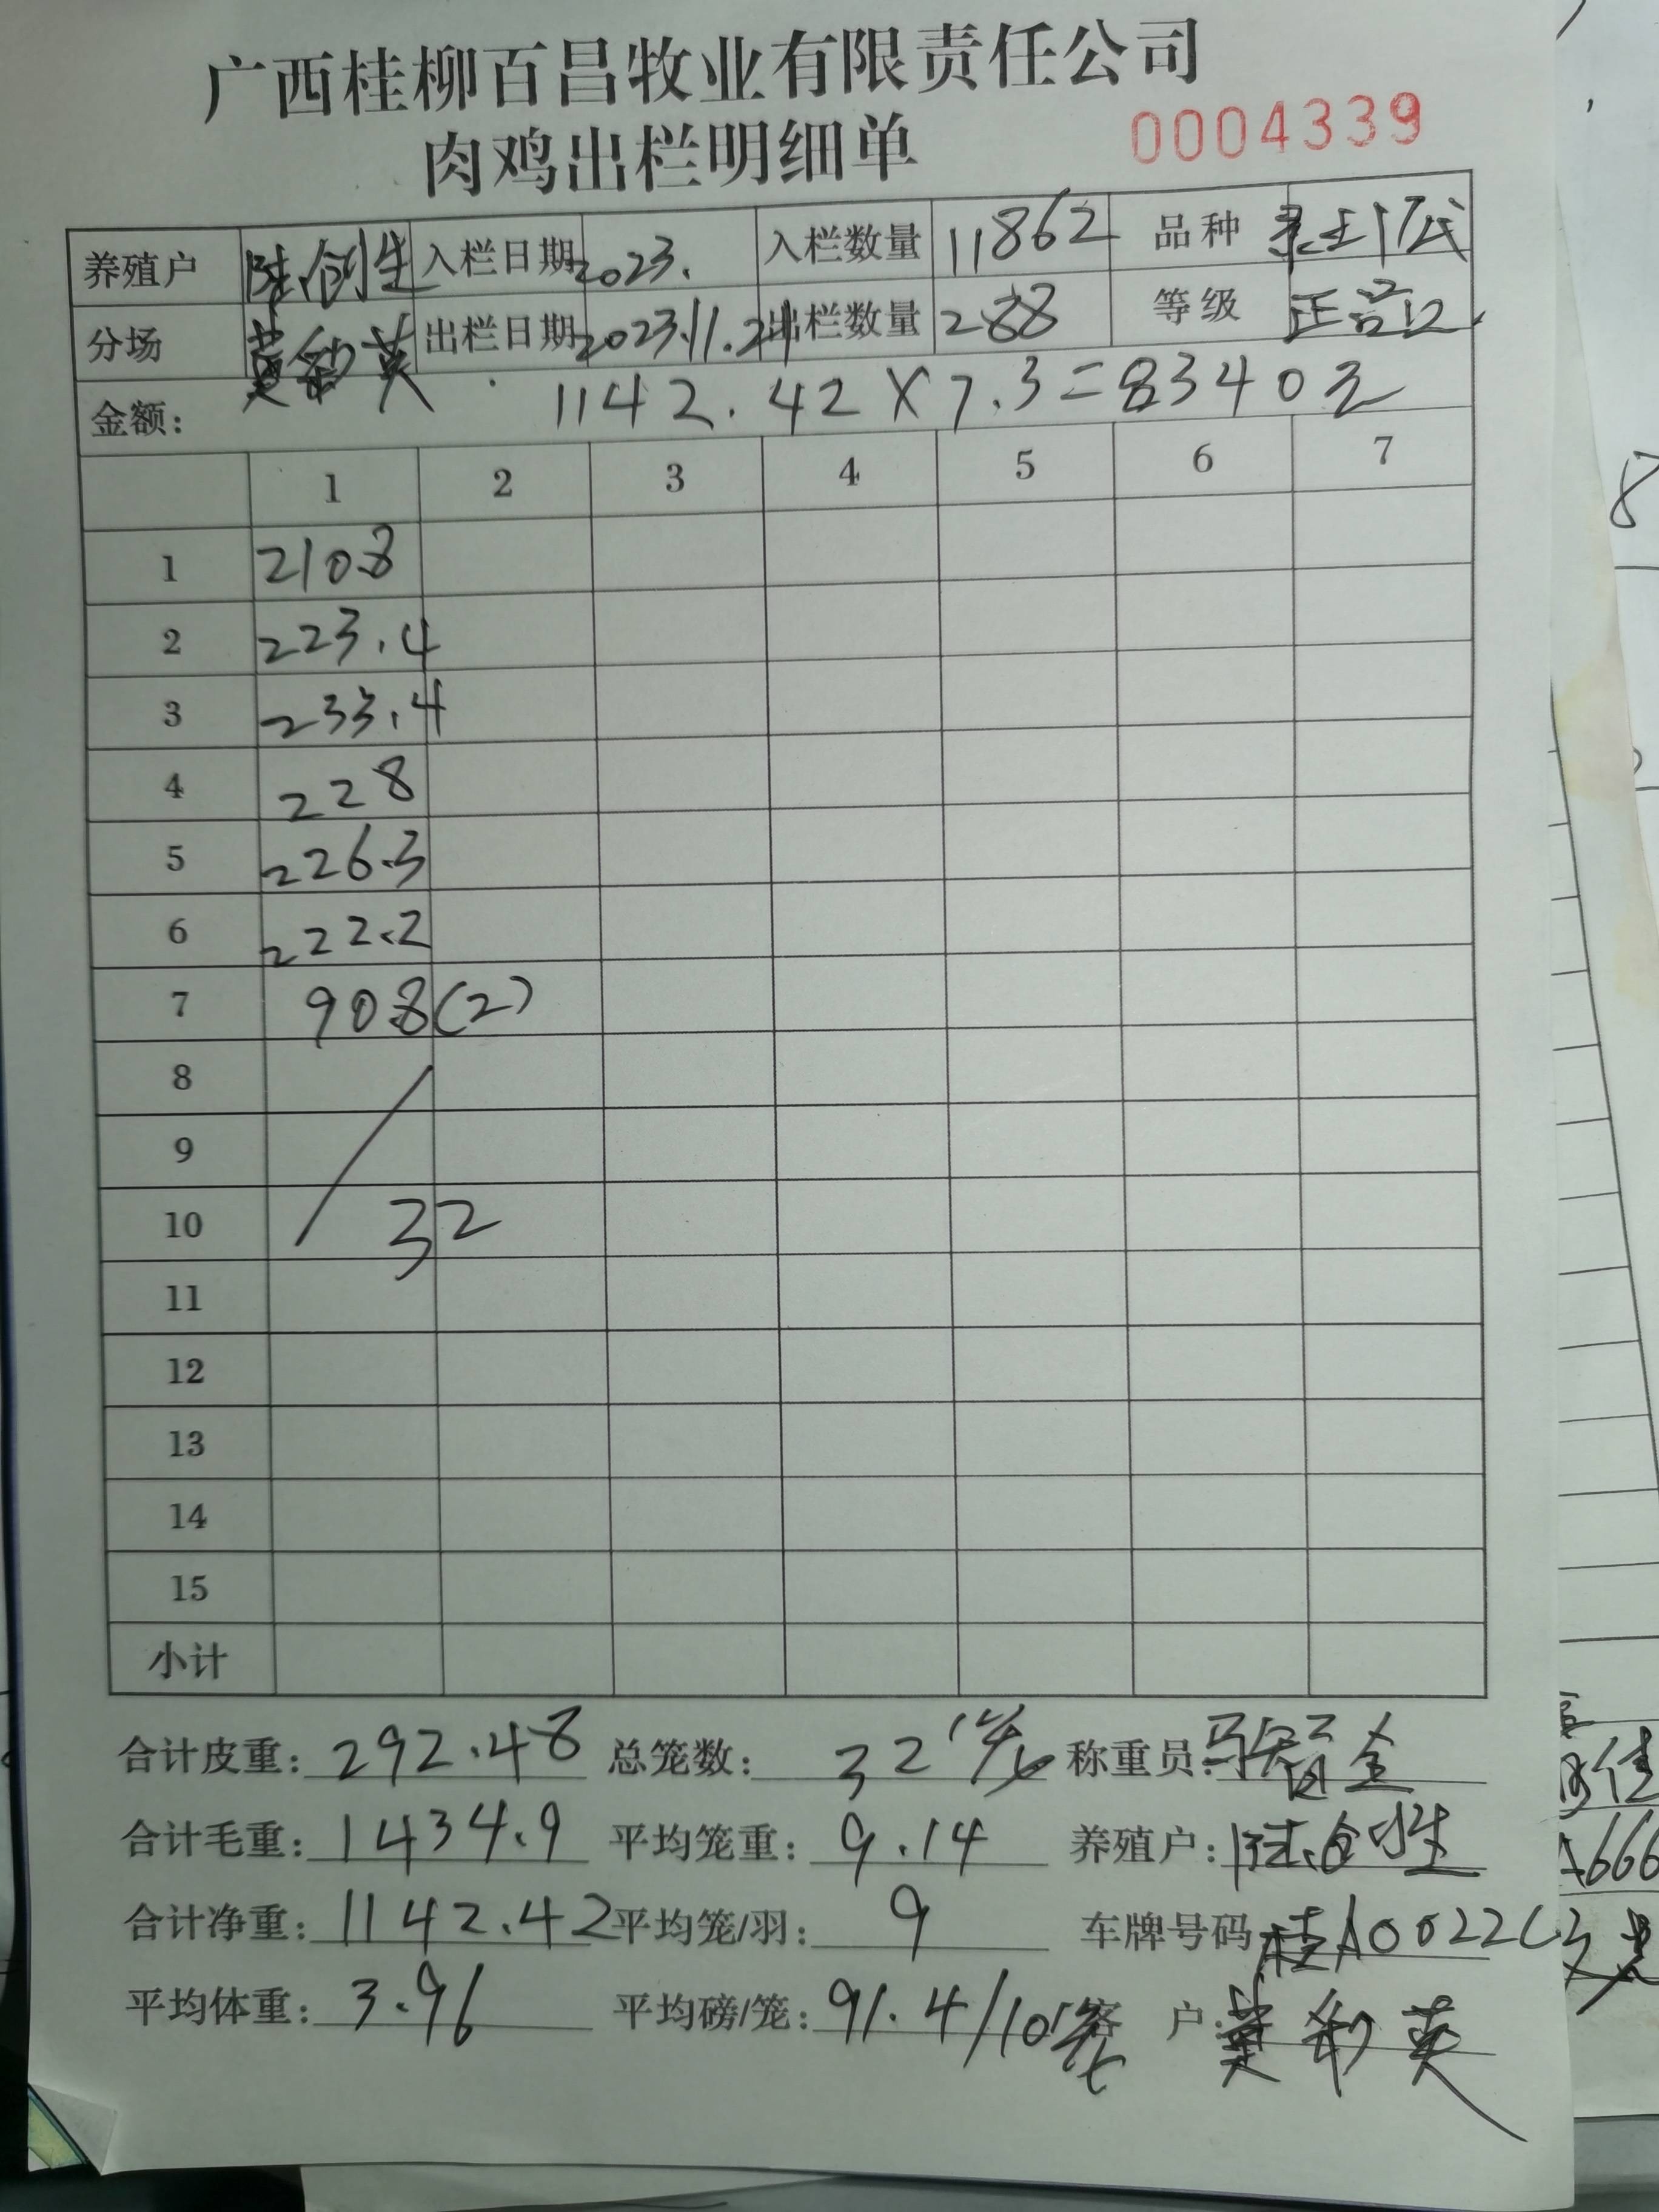 广西桂柳百昌牧业有限责任公司
肉鸡出栏明细单 0004339
养殖户 陆创生 入栏日期 2023. 入栏数量 11862 品种
分场 莫彩英 出栏日期 2023.11.24 出栏数量 288 等级 正品
金额: 1142.42×7.3=8340元
1 2 3 4 5 6 7
1 210.8
2 223.4
3 233.4
4 228
5 226.3
6 222.2
7 90.8(2)
8
9
10 32
11
12
13
14
15
小计
合计皮重: 292.48 总笼数: 32 称重员:
合计毛重: 1434.9 平均笼重: 9.14 养殖户:
合计净重: 1142.42 平均笼/羽: 9 车牌号码
平均体重: 3.96 平均磅/笼: 91.4/10笼 客 户: 莫彩英